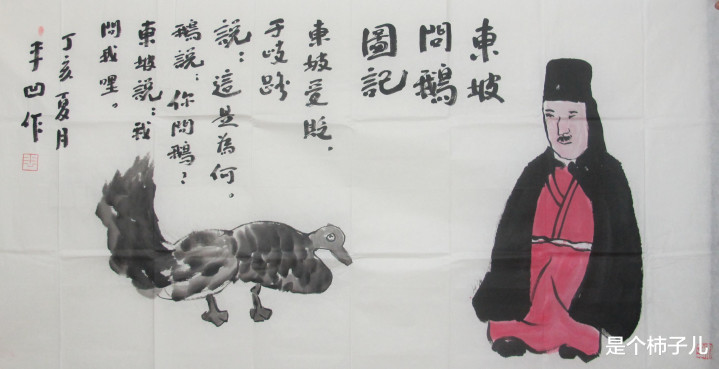 東坡
問鵝
圖記
東坡受貶，
于歧路
說：這是為何。
鵝說：你問鵝？
東坡說：我
問我哩。
丁亥夏月
平凹作
是个柿子儿